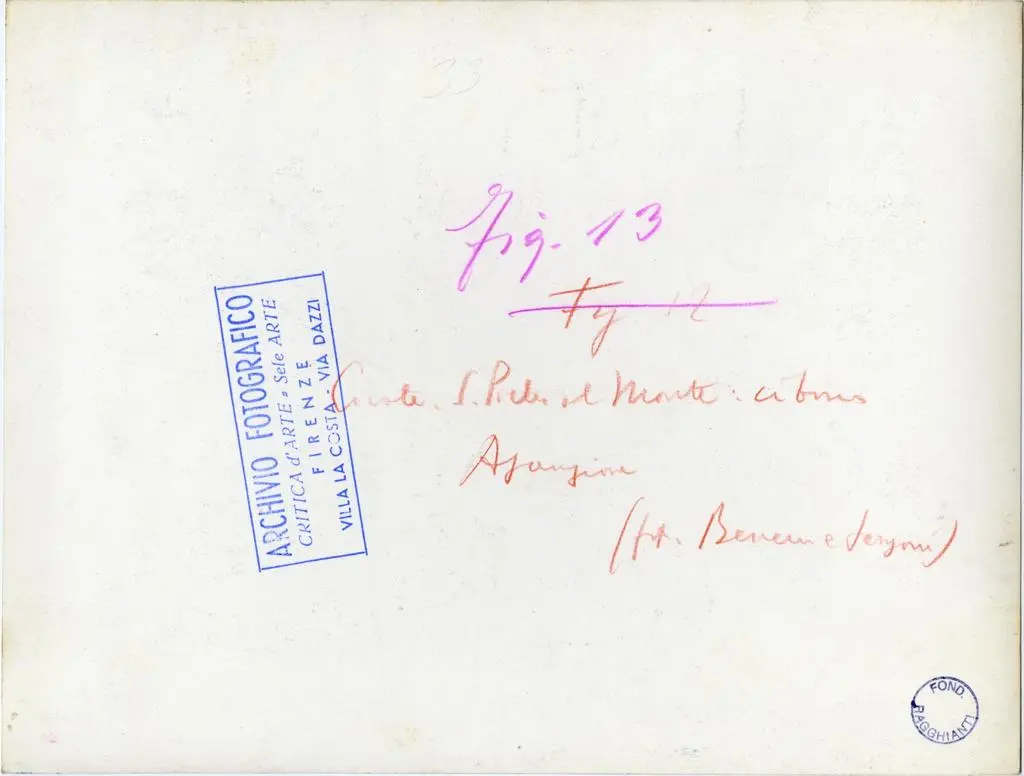 33
Fig. 13
Fig 12
Civate. S. Pietro al Monte: ciborio
(fot.
ARCHIVIO FOTOGRAFICO
CRITICA d'ARTE e Sele ARTE
FIRENZE
VILLA LA COSTA - VIA DAZZI
FOND.
RAGGHIANTI